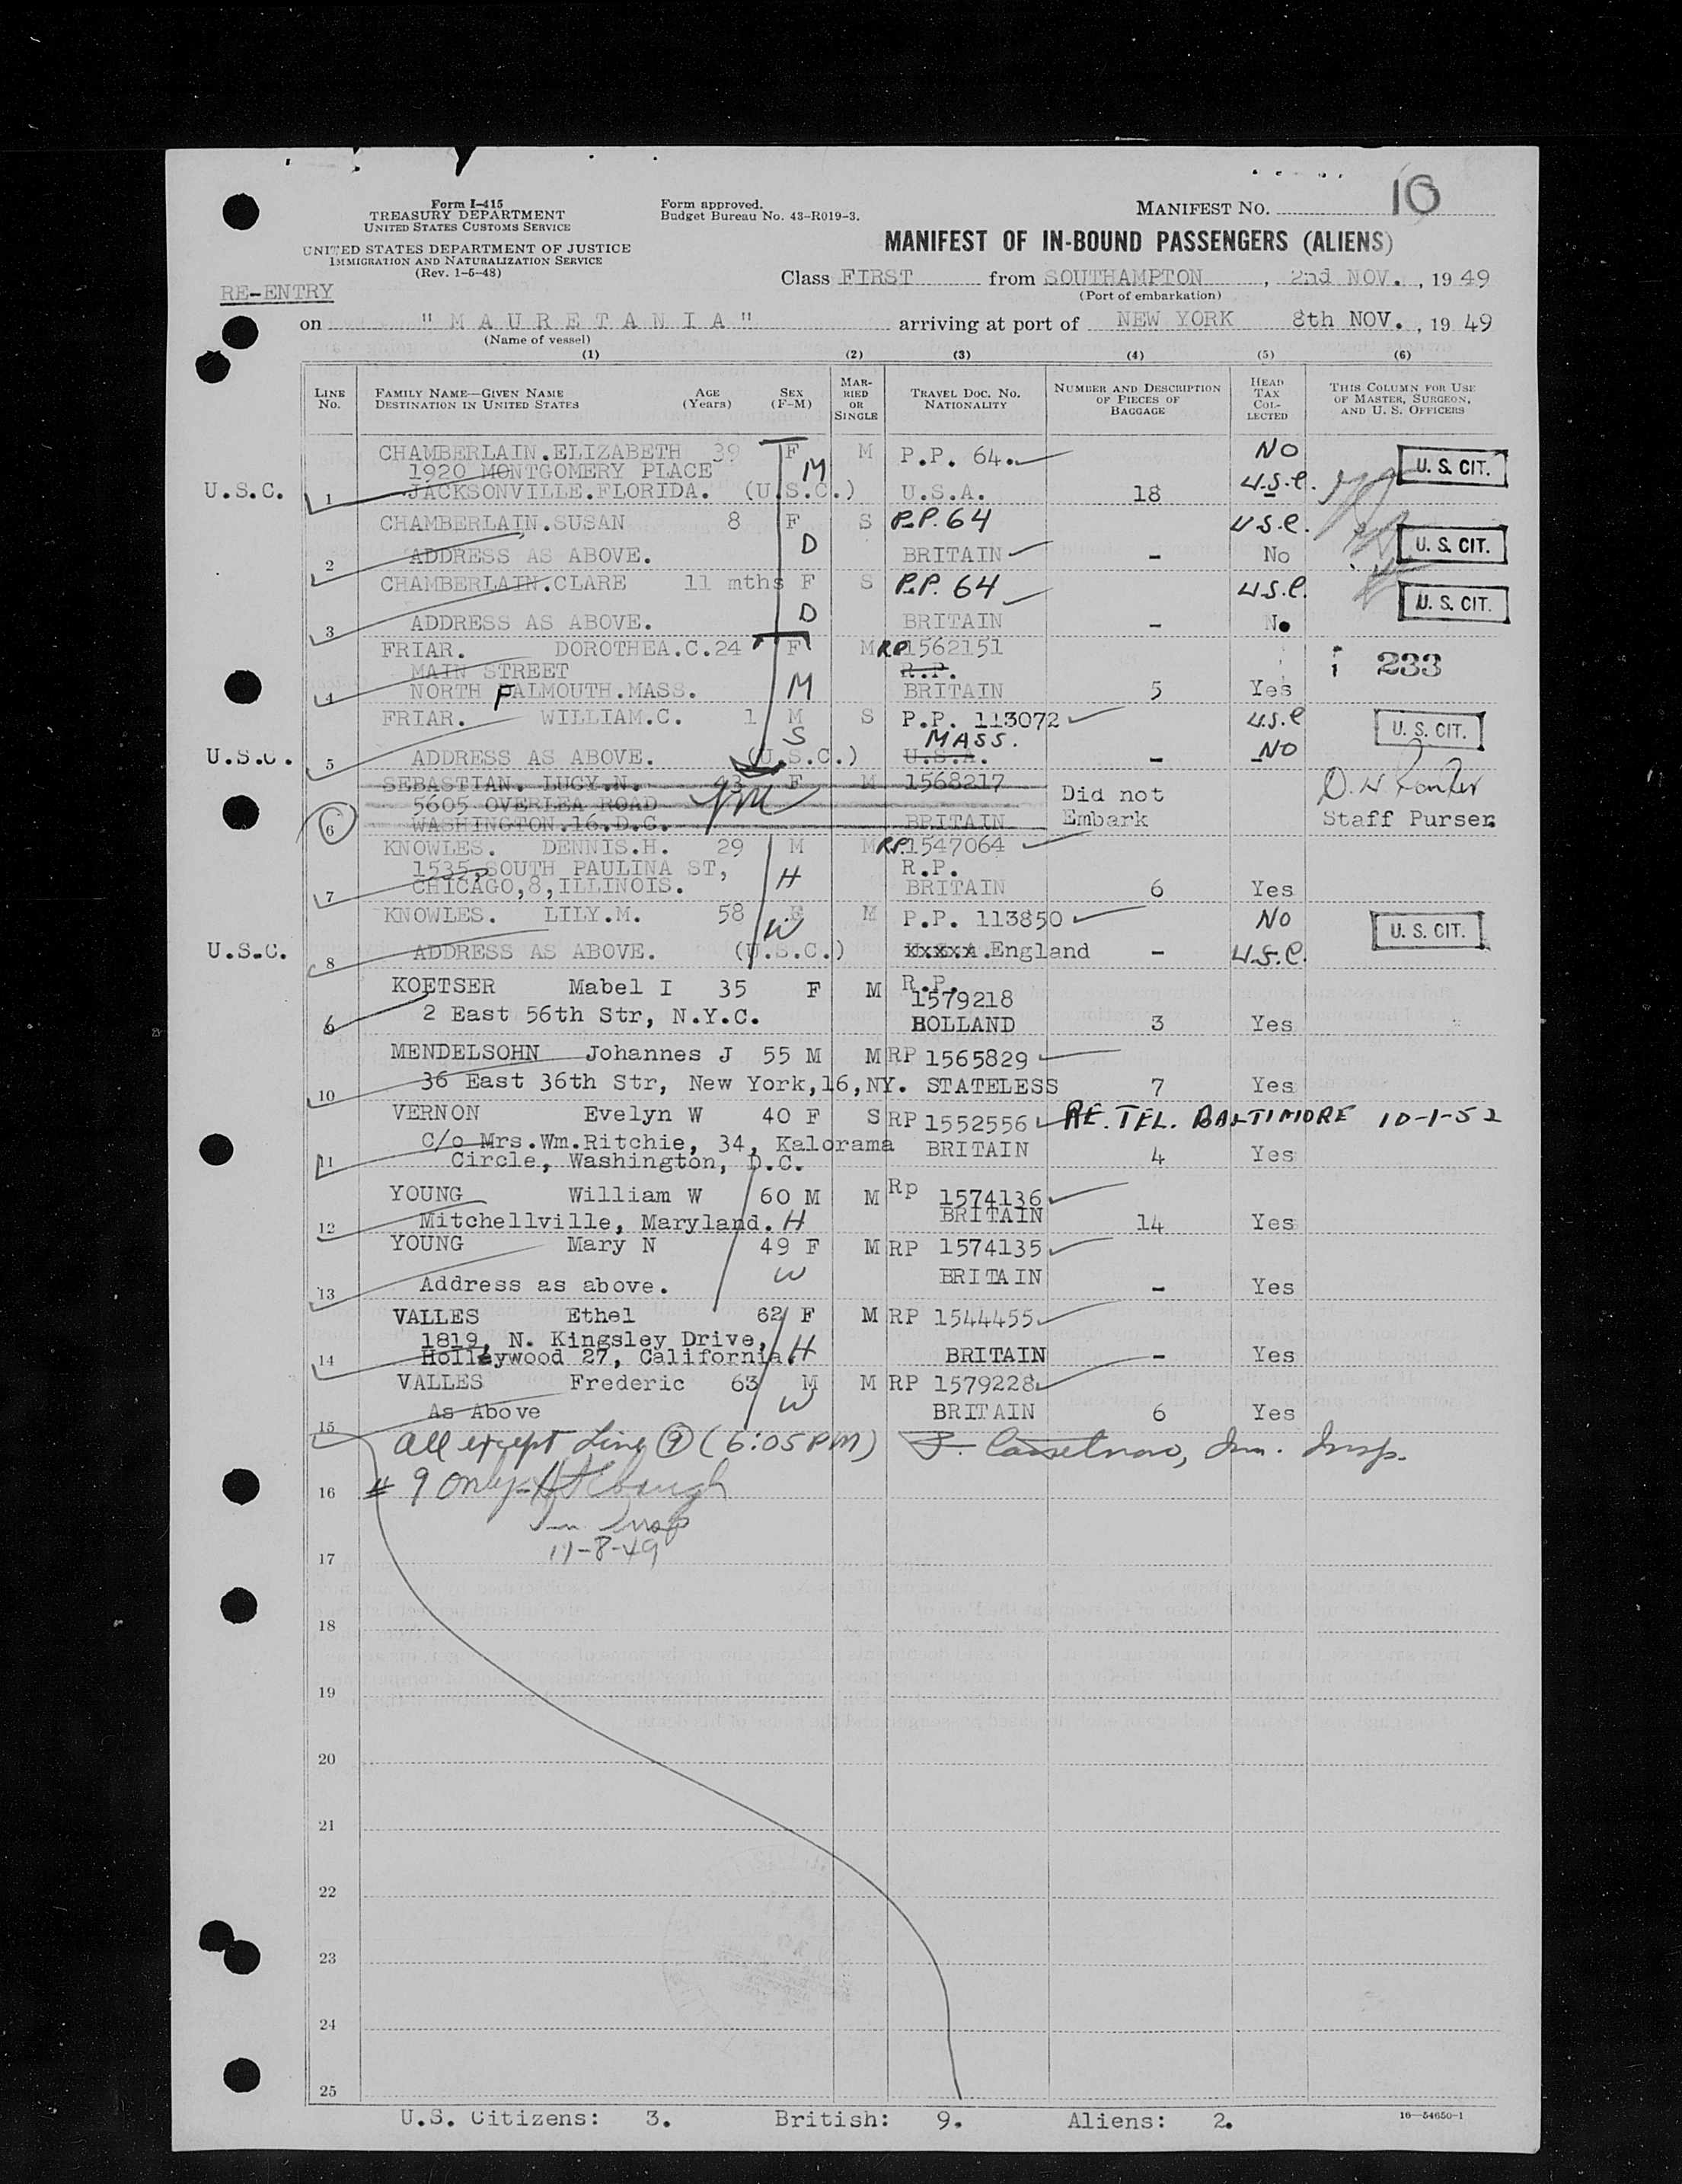 10
Form I-415
TREASURY DEPARTMENT
UNITED STATES CUSTOMS SERVICE
UNITED STATES DEPARTMENT OF JUSTICE
IMMIGRATION AND NATURALIZATION SERVICE
(Rev. 1-5-48)
Form approved.
Budget Bureau No. 43-R019-3.
MANIFEST NO.
MANIFEST OF IN-BOUND PASSENGERS (ALIENS)
RE-ENTRY
Class FIRST from SOUTHAMPTON, 2nd NOV., 19 49
(Port of embarkation)
on "MAURETANIA" arriving at port of NEW YORK 8th NOV., 19 49
(Name of vessel)
(1) (2) (3) (4) (5) (6)
LINE No. FAMILY NAME—GIVEN NAME DESTINATION IN UNITED STATES AGE (Years) SEX (F-M) MARRIED OR SINGLE TRAVEL DOC. NO. NATIONALITY NUMBER AND DESCRIPTION OF PIECES OF BAGGAGE HEAD TAX COLLECTED THIS COLUMN FOR USE OF MASTER, SURGEON, AND U. S. OFFICERS
CHAMBERLAIN.ELIZABETH 39 F M P.P. 64. NO
1920 MONTGOMERY PLACE M U. S. CIT.
U.S.C. 1 JACKSONVILLE.FLORIDA. (U.S.C.) U.S.A. 18 U.S.C.
CHAMBERLAIN.SUSAN 8 F S P.P. 64 U.S.C.
2 ADDRESS AS ABOVE. D BRITAIN - No U. S. CIT.
CHAMBERLAIN.CLARE 11 mths F S P.P. 64 U.S.C.
3 ADDRESS AS ABOVE. D BRITAIN - No U. S. CIT.
FRIAR. DOROTHEA.C. 24 F M RP 1562151
MAIN STREET R.P. i 233
4 NORTH FALMOUTH.MASS. M BRITAIN 5 Yes
FRIAR. WILLIAM.C. 1 M S P.P. 113072 U.S.C
S MASS. U. S. CIT.
U.S.C. 5 ADDRESS AS ABOVE. (U.S.C.) U.S.A. - NO
SEBASTIAN. LUCY.N. 43 F M 1568217
5605 OVERLEA ROAD Did not
6 WASHINGTON.16.D.C. BRITAIN Embark Staff Purser
KNOWLES. DENNIS.H. 29 M M RP. 1547064
1535, SOUTH PAULINA ST, R.P.
7 CHICAGO,8,ILLINOIS. H BRITAIN 6 Yes
KNOWLES. LILY.M. 58 F M P.P. 113850 NO
W U. S. CIT.
U.S.C. 8 ADDRESS AS ABOVE. (U.S.C.) xxxxx.England - U.S.C.
KOETSER Mabel I 35 F M R.P.
1579218
2 East 56th Str, N.Y.C. HOLLAND 3 Yes
MENDELSOHN Johannes J 55 M M RP 1565829
10 36 East 36th Str, New York,16,NY. STATELESS 7 Yes
VERNON Evelyn W 40 F S RP 1552556 RE. TEL. BALTIMORE 10-1-52
C/o Mrs.Wm.Ritchie, 34, Kalorama BRITAIN 4 Yes
11 Circle, Washington, D.C.
YOUNG William W 60 M M Rp 1574136
12 Mitchellville, Maryland. H BRITAIN 14 Yes
YOUNG Mary N 49 F M RP 1574135
W BRITAIN
13 Address as above. - Yes
VALLES Ethel 62 F M RP 1544455
1819, N. Kingsley Drive, H
14 Hollywood 27, California. BRITAIN - Yes
VALLES Frederic 63 M M RP 1579228
W
15 As Above BRITAIN 6 Yes
All except Line 9 (6:05 PM) Im. Insp.
16 # 9 only
Im Insp
11-8-49
17
18
19
20
21
22
23
24
25
U.S. Citizens: 3. British: 9. Aliens: 2.
16—54650-1